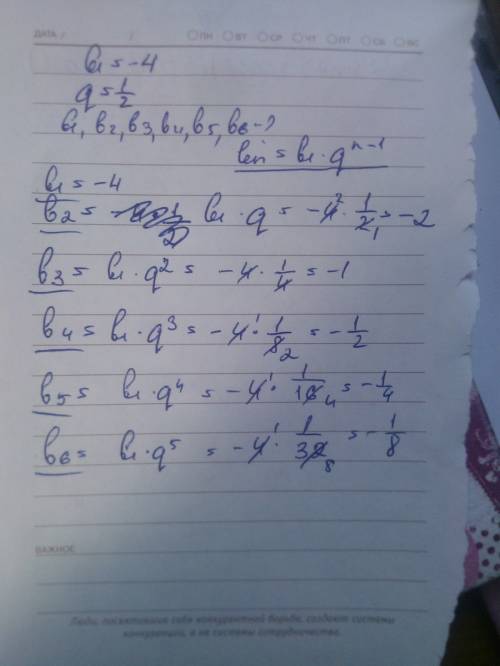 ДАТА / / ПН ВТ СР ЧТ ПТ СБ ВС
b₁ = -4
q = 1/2
b₁, b₂, b₃, b₄, b₅, b₆ - ?
bn = b₁ · qⁿ⁻¹
b₁ = -4
b₂ = b₁ · q = -4² · 1/2₁ = -2
b₃ = b₁ · q² = -4 · 1/4 = -1
b₄ = b₁ · q³ = -4¹ · 1/8₂ = -1/2
b₅ = b₁ · q⁴ = -4¹ · 1/16₄ = -1/4
b₆ = b₁ · q⁵ = -4¹ · 1/32₈ = -1/8
ВАЖНОЕ
Люди, посвятившие себя конкурентной борьбе, создают системы
конкуренции, а не системы сотрудничества.